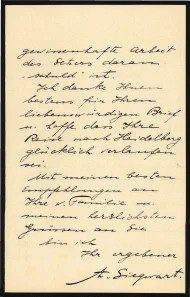 gewissenhafte Arbeit
des Setzers daran
schuld ist.
Ich danke Ihnen
bestens für Ihren
liebenswürdigen Brief
u. hoffe dass Ihre
Reise nach Heidelberg
glücklich verlaufen
sei.
Mit meinen besten
Empfehlungen an
Ihre v. Familie u.
meinen herzlichsten
Grüssen an Sie
bin ich
Ihr ergebener
A. Siegwart.